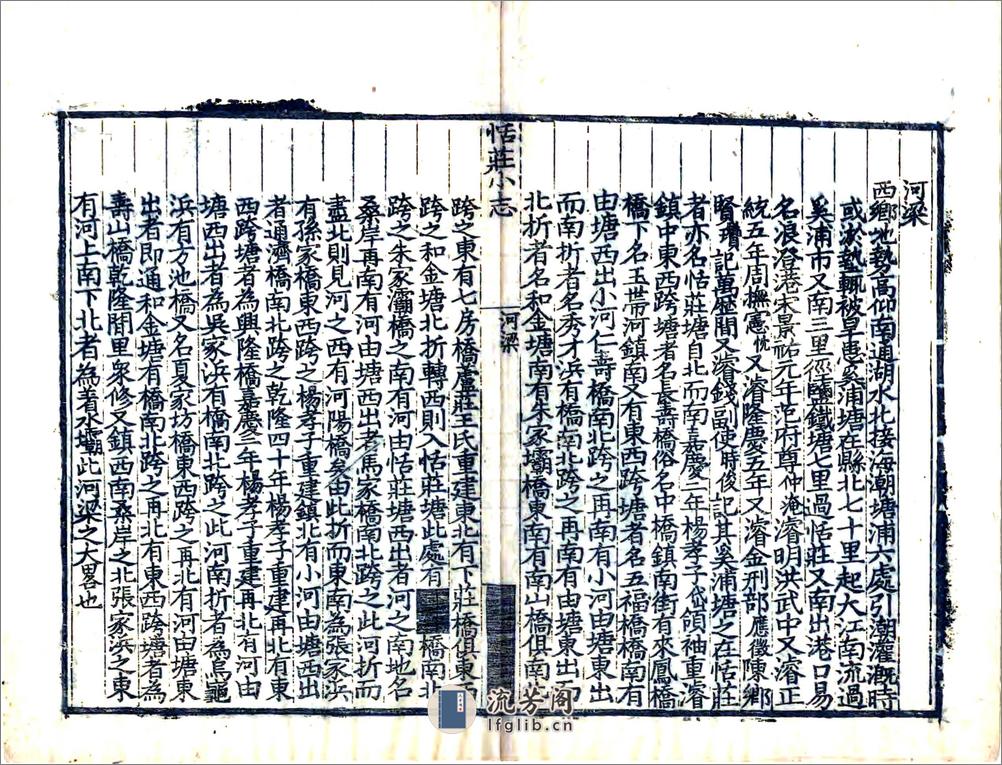 河梁
西鄉地勢高仰南通湖水北接海潮塘浦六處引潮灌漑時
或淤墊輒被旱患奚浦塘在縣北七十里起大江南流過
奚浦市又南三里徑鹽鐵塘七里過恬莊又南出港口易
名浪澄港宋景祐元年范府尊仲淹濬明洪武中又濬正
統五年周撫憲忱又濬隆慶五年又濬金刑部應徵陳鄉
賢瓚記萬歷間又濬錢副使時俊記其奚浦塘之在恬莊
者亦名恬莊塘自北而南嘉慶二年楊孝子岱領袖重濬
鎮中東西跨塘者名長壽橋俗名中橋鎮南街有來鳳橋
橋下名玉帶河鎮南又有東西跨塘者名五福橋橋南有
由塘西出小河仁壽橋南北跨之再南有小河由塘東出
而南折者名秀才浜有橋南北跨之再南有由塘東出而
北折者名和金塘南有朱家壩橋東南有南山橋俱南
恬莊小志
河梁
跨之東有七房橋盧莊王氏重建東北有下莊橋俱東西
跨之和金塘北折轉西則入恬莊塘此處有 橋南北
跨之朱家灞橋之南有河由恬莊塘西出者河之南地名
桑岸再南有河由塘西出老馬家橋南北跨之此河折而
盡北則見河之西有河陽橋矣由此折而東南為張家浜
有孫家橋東西跨之楊孝子重建鎮北有小河由塘西出
者通濟橋南北跨之乾隆四十年楊孝子重建再北有東
西跨塘者為興隆橋嘉慶三年楊孝子重建再北有河由
塘西出者為吳家浜有橋南北跨之此河南折者為烏龜
浜有方池橋又名夏家坊橋東西跨之再北有河由塘東
出者即通和金塘有橋南北跨之再北有東西跨塘者為
壽山橋乾隆間里衆修又鎮西南桑岸之北張家浜之東
有河上南下北者為著水壩此河梁之大畧也
流芳阁
lfglib.cn